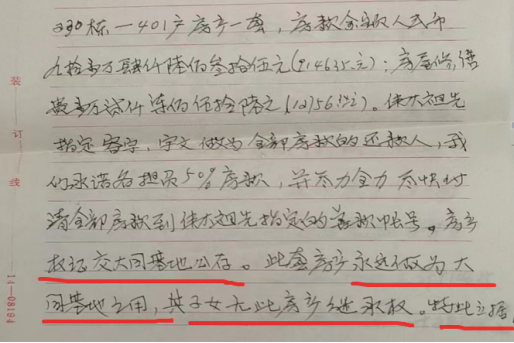 230栋一401户房产一套,房款金额人民币
九拾壹万肆仟陆佰叁拾伍元(914635元);房屋
壹万贰仟伍佰陆(12756元)。伟大祖先
指定 字、宇文做为全部房款的还款人,我
们承诺各担负50%房款,并尽力全力尽快付
清全部房款到伟大祖先指定的 款帐号。房产
权证交大同基地公存。此套房产永远做为大
同基地之用,其子女无此房产继承权。特此立据,
装
订
线
14-08194